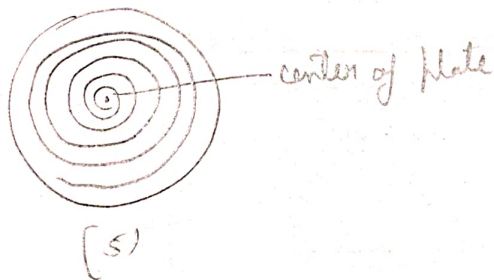 center of plate
(5)